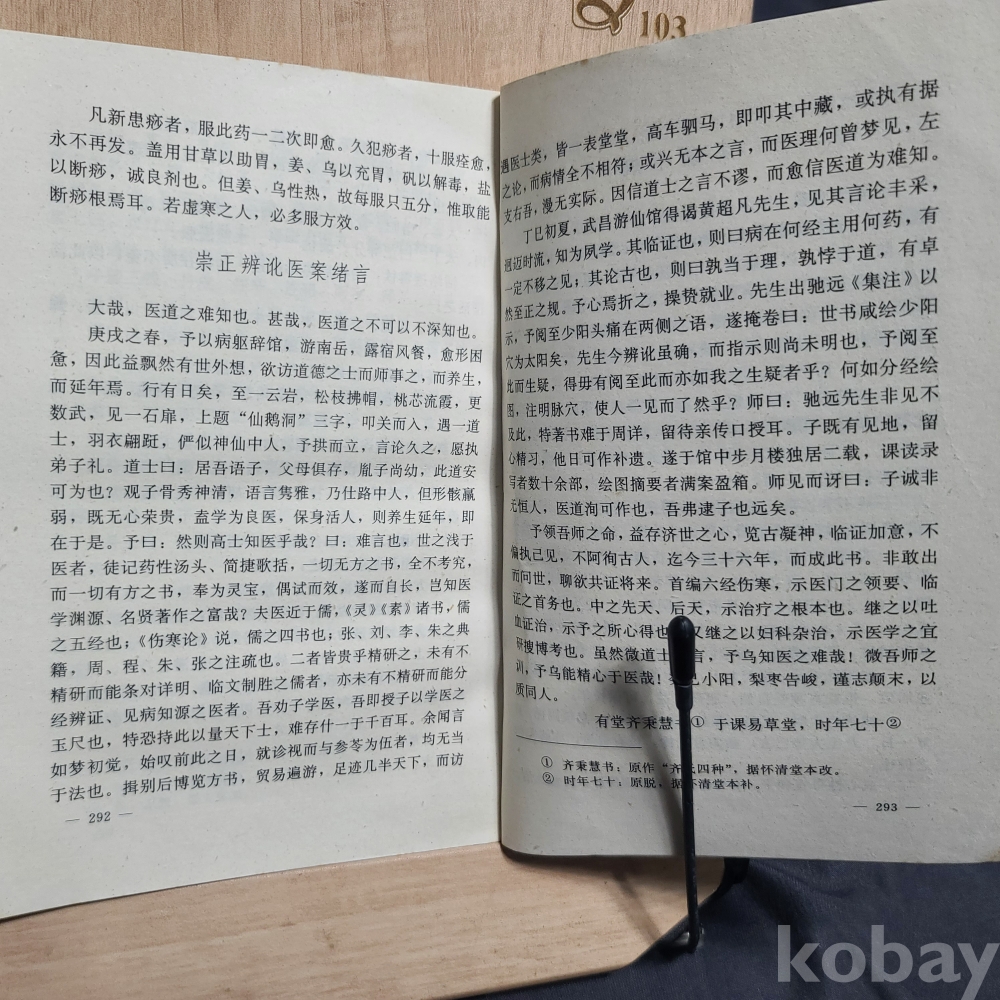 103
凡新患痧者，服此药一二次即愈。久犯痧者，十服痊愈，
永不再发。盖用甘草以助胃，姜、乌以充胃，矾以解毒，盐
以断痧，诚良剂也。但姜、乌性热，故每服只五分，惟取能
断痧根焉耳。若虚寒之人，必多服方效。
崇正辨讹医案绪言
大哉，医道之难知也。甚哉，医道之不可以不深知也。
庚戌之春，予以病躯辞馆，游南岳，露宿风餐，愈形困
惫，因此益飘然有世外想，欲访道德之士而师事之，而养生，
而延年焉。行有日矣，至一云岩，松枝拂帽，桃芯流霞，更
数武，见一石扉，上题“仙鹅洞”三字，叩关而入，遇一道
士，羽衣翩跹，俨似神仙中人，予拱而立，言论久之，愿执
弟子礼。道士曰：居吾语子，父母俱存，胤子尚幼，此道安
可为也？观子骨秀神清，语言隽雅，乃仕路中人，但形骸羸
弱，既无心荣贵，盍学为良医，保身活人，则养生延年，即
在于是。予曰：然则高士知医乎哉？曰：难言也，世之浅于
医者，徒记药性汤头、简捷歌括，一切无方之书，全不考究，
而一切有方之书，奉为灵宝，偶试而效，遂而自长，岂知医
学渊源、名贤著作之富哉？夫医近于儒，《灵》《素》诸书，儒
之五经也；《伤寒论》说，儒之四书也；张、刘、李、朱之典
籍，周、程、朱、张之注疏也。二者皆贵乎精研之，未有不
精研而能条对详明、临文制胜之儒者，亦未有不精研而能分
经辨证、见病知源之医者。吾劝子学医，吾即授子以学医之
玉尺也，特恐持此以量天下士，难存什一于千百耳。余闻言
如梦初觉，始叹前此之日，就诊视而与参苓为伍者，均无当
于法也。揖别后博览方书，贸易遍游，足迹几半天下，而访
— 292 —
遇医士类，皆一表堂堂，高车驷马，即叩其中藏，或执有据
之论，而病情全不相符；或兴无本之言，而医理何曾梦见，左
支右吾，漫无实际。因信道士之言不谬，而愈信医道为难知。
丁巳初夏，武昌游仙馆得谒黄超凡先生，见其言论丰采，
迥迈时流，知为夙学。其临证也，则曰病在何经主用何药，有
一定不移之见；其论古也，则曰孰当于理，孰悖于道，有卓
然至正之规。予心焉折之，操贽就业。先生出驰远《集注》以
示，予阅至少阳头痛在两侧之语，遂掩卷曰：世书咸绘少阳
穴为太阳矣，先生今辨讹虽确，而指示则尚未明也，予阅至
此而生疑，得毋有阅至此而亦如我之生疑者乎？何如分经绘
图，注明脉穴，使人一见而了然乎？师曰：驰远先生非见不
及此，特著书难于周详，留待亲传口授耳。子既有见地，留
心精习，他日可作补遗。遂于馆中步月楼独居二载，课读录
写者数十余部，绘图摘要者满案盈箱。师见而讶曰：子诚非
无恒人，医道洵可作也，吾弗逮子也远矣。
予领吾师之命，益存济世之心，览古凝神，临证加意，不
偏执己见，不阿徇古人，迄今三十六年，而成此书。非敢出
而问世，聊欲共证将来。首编六经伤寒，示医门之领要、临
证之首务也。中之先天、后天，示治疗之根本也。继之以吐
血证治，示予之所心得也 又继之以妇科杂治，示医学之宜
研搜博考也。虽然微道士 言，予乌知医之难哉！微吾师之
训，予乌能精心于医哉！ 己小阳，梨枣告峻，谨志颠末，以
质同人。
有堂齐秉慧书① 于课易草堂，时年七十②
① 齐秉慧书：原作“齐氏四种”，据怀清堂本改。
② 时年七十：原脱，据怀清堂本补。
— 293 —
kobay